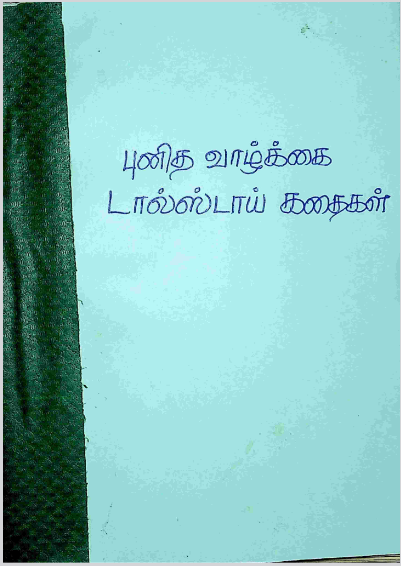 புனித வாழ்க்கை
டால்ஸ்டாய் கதைகள்